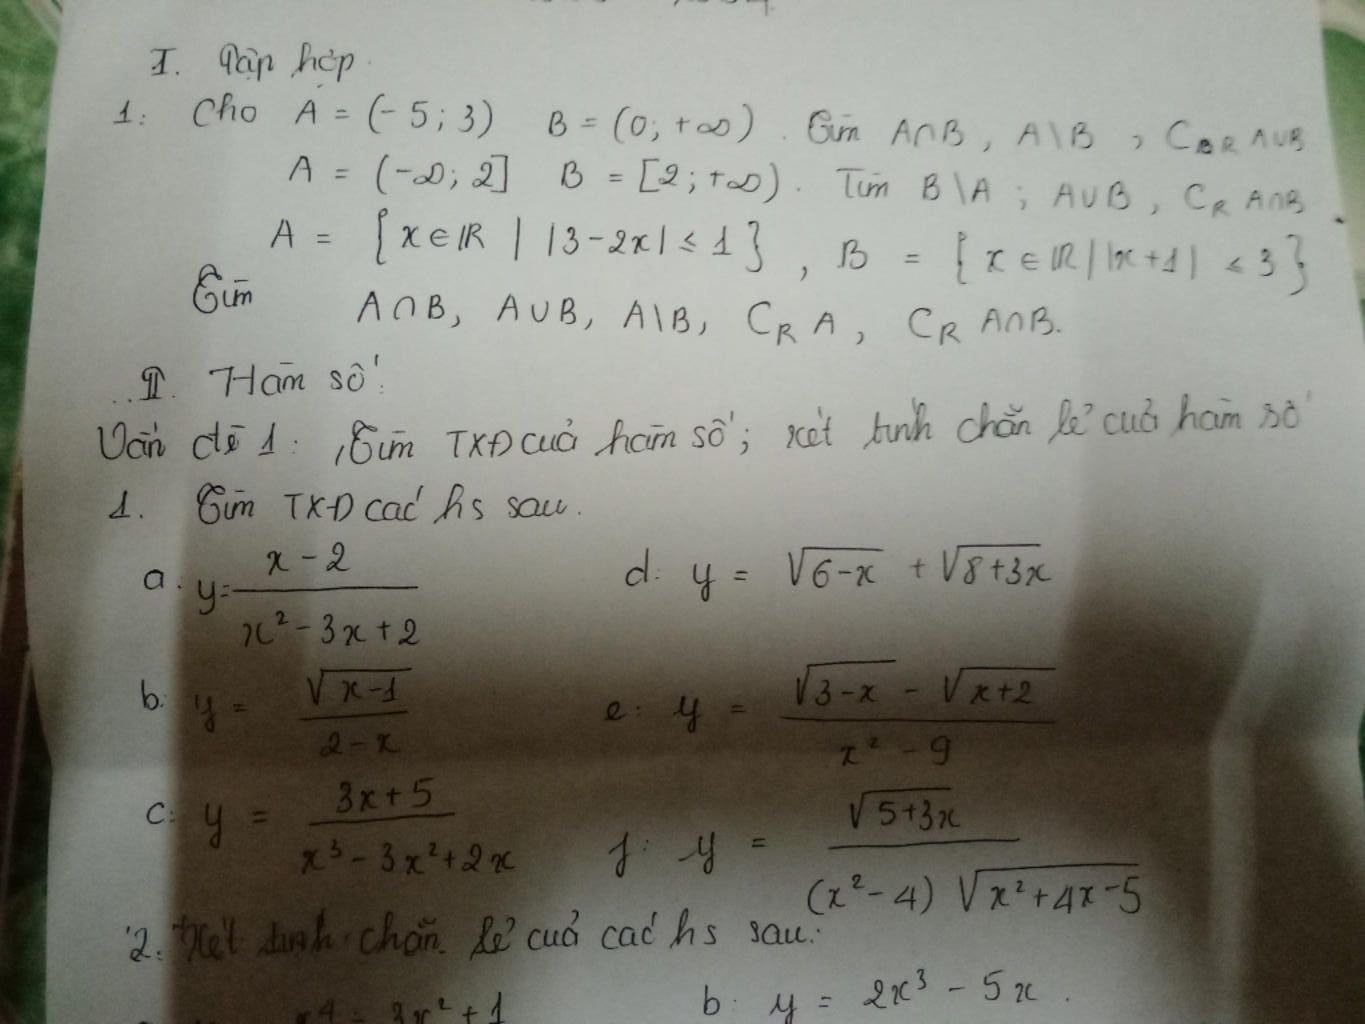 I. Tập hợp.
1: Cho A = (-5; 3) B = (0; +∞). Tìm A∩B, A\B, C_R A∪B
A = (-∞; 2] B = [2; +∞). Tìm B\A; A∪B, C_R A∩B
A = {x ∈ ℝ | |3-2x| ≤ 1}, B = {x ∈ ℝ | |x+1| ≤ 3}
Tìm A∩B, A∪B, A\B, C_R A, C_R A∩B.
II. Hàm số:
Vấn đề 1: Tìm TXĐ của hàm số; xét tính chẵn lẻ của hàm số
1. Tìm TXĐ các hs sau.
a. y = (x-2)/(x²-3x+2) d: y = √(6-x) + √(8+3x)
b: y = √(x-1)/(2-x) e: y = (√(3-x) - √(x+2))/(x²-9)
c: y = (3x+5)/(x³-3x²+2x) f: y = √(5+3x)/((x²-4)√(x²+4x-5))
2. Xét tính chẵn lẻ của các hs sau:
x⁴ - 3x² + 1 b: y = 2x³ - 5x.